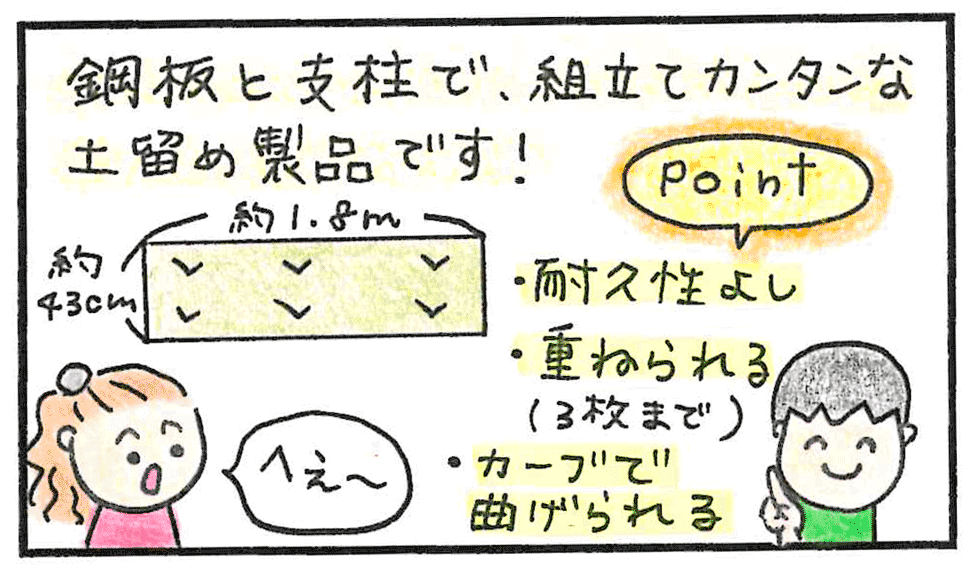 鋼板と支柱で、組立てカンタンな
土留め製品です！
point
約1.8m
約
43cm
・耐久性よし
・重ねられる
（3枚まで）
・カーブで
曲げられる
へぇ〜